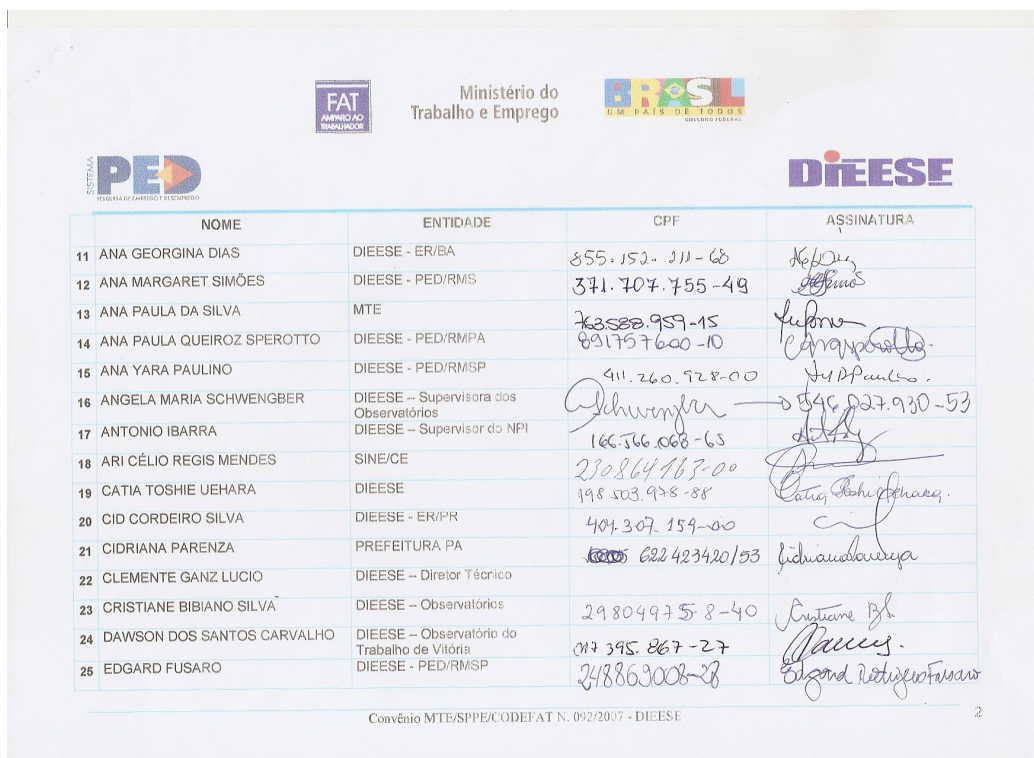 FAT
AMPARO AO
TRABALHADOR
Ministério do
Trabalho e Emprego
BRASIL
UM PAÍS DE TODOS
GOVERNO FEDERAL
SISTEMA
PED
PESQUISA DE EMPREGO E DESEMPREGO
DIEESE
NOME ENTIDADE CPF ASSINATURA
11 ANA GEORGINA DIAS DIEESE - ER/BA 855.152.211-68
12 ANA MARGARET SIMÕES DIEESE - PED/RMS 371.707.755-49
13 ANA PAULA DA SILVA MTE 763.588.959-15
14 ANA PAULA QUEIROZ SPEROTTO DIEESE - PED/RMPA 891757600-10
15 ANA YARA PAULINO DIEESE - PED/RMSP 411.260.928-00
16 ANGELA MARIA SCHWENGBER DIEESE – Supervisora dos Schwengber 546.027.930-53
Observatórios
17 ANTONIO IBARRA DIEESE – Supervisor do NPI 166.566.068-65
18 ARI CÉLIO REGIS MENDES SINE/CE 230864163-00
19 CATIA TOSHIE UEHARA DIEESE 198 503.978-88 Catia Toshie Uehara.
20 CID CORDEIRO SILVA DIEESE - ER/PR 401.307.159-00
21 CIDRIANA PARENZA PREFEITURA PA 622423420/53 Cidriana Parenza
22 CLEMENTE GANZ LUCIO DIEESE – Diretor Técnico
23 CRISTIANE BIBIANO SILVA DIEESE – Observatórios 298049758-40 Cristiane BS.
24 DAWSON DOS SANTOS CARVALHO DIEESE – Observatório do 017 395.867-27
Trabalho de Vitória
25 EDGARD FUSARO DIEESE - PED/RMSP 248869008-28 Edgard Rodrigues Fusaro
Convênio MTE/SPPE/CODEFAT N. 092/2007 - DIEESE
2